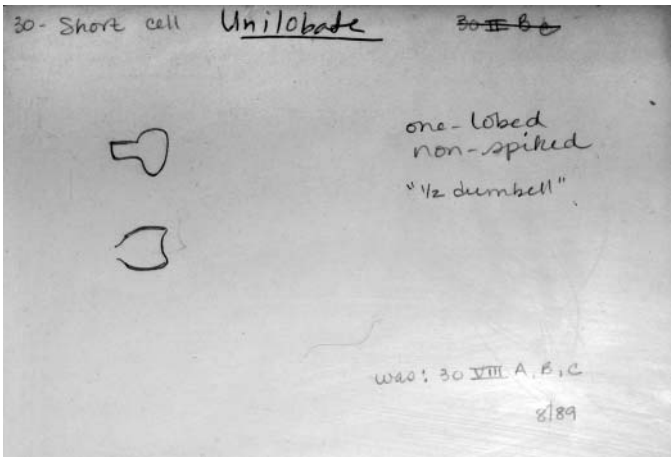 30- Short cell Unilobate 30 III B c
one-lobed
non-spiked
"1/2 dumbell"
was: 30 VIII A, B, C
8/89